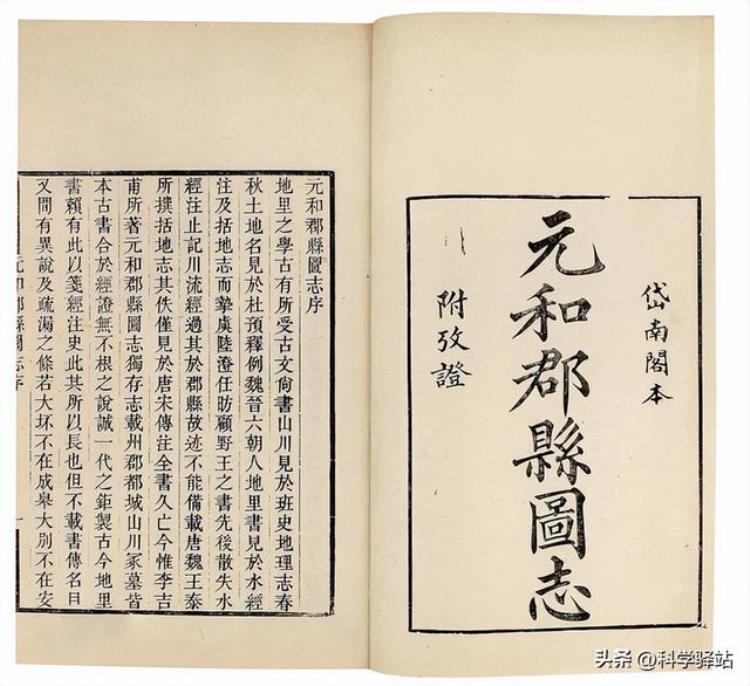 岱南閣本
元和郡縣圖志
附攷證
元和郡縣圖志序
地里之學古有所受古文尙書山川見於班史地理志春
秋土地名見於杜預釋例魏晉六朝人地里書見於水經
注及括地志而摯虞陸澄任昉顧野王之書先後散失水
經注止記川流經過其於郡縣故迹不能備載唐魏王泰
所撰括地志其佚僅見於唐宋傳注全書久亡今惟李吉
甫所著元和郡縣圖志獨存志載州郡都城山川冢墓皆
本古書合於經證無不根之說誠一代之鉅製古今地里
書賴有此以箋經注史此其所以長也但不載書傳名目
又間有異說及疏漏之條若大坯不在成皋大別不在安
元和郡縣圖志序
一
头条 @科学驿站